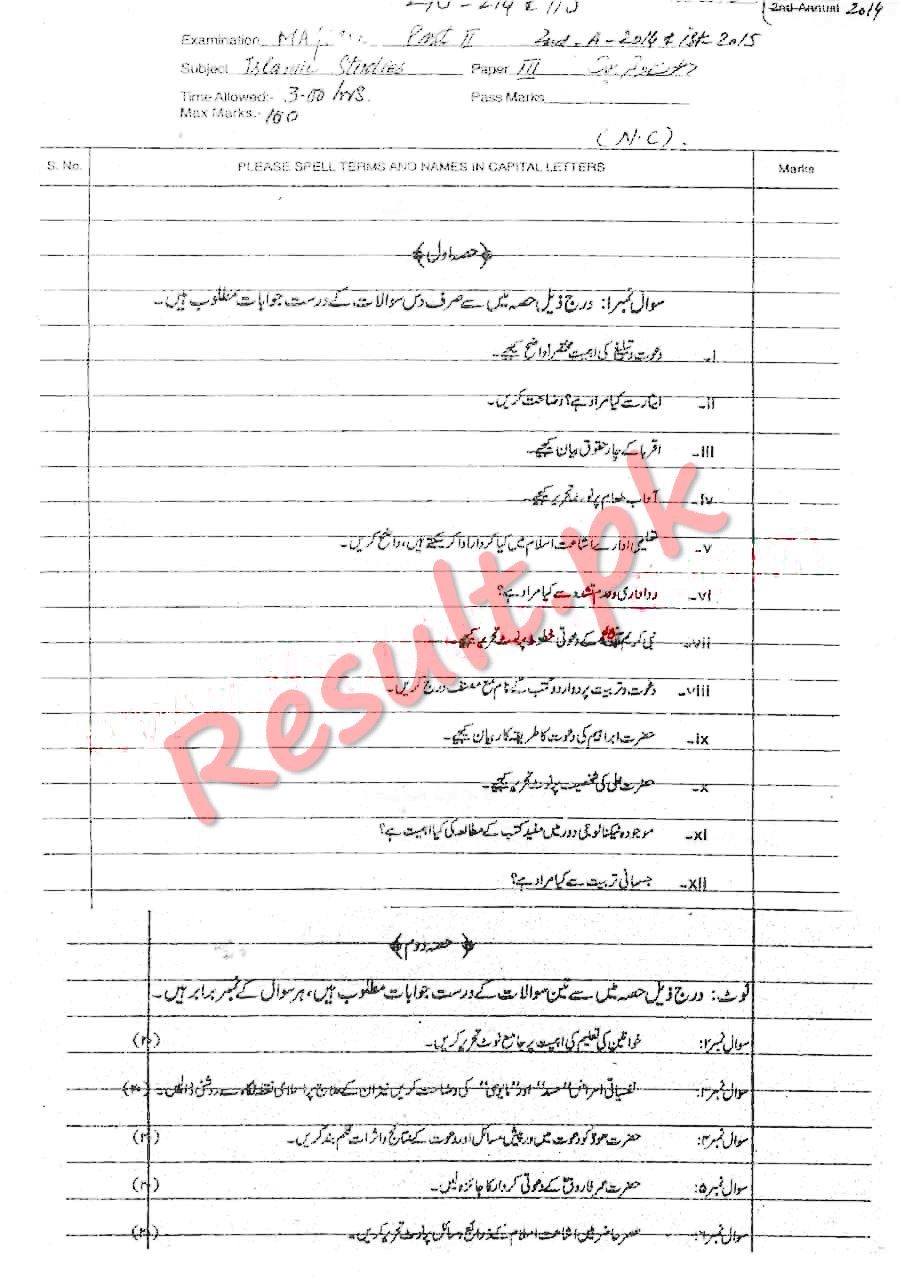 2nd Annual 2014
Examination Part II 2nd-A-2014 & 1st 2015
Subject Islamic Studies Paper III
Time Allowed:- 3-00 hrs. Pass Marks
Max Marks:- 100
(N.C).
S. No. PLEASE SPELL TERMS AND NAMES IN CAPITAL LETTERS Marks
﴿حصہ اول﴾
سوال نمبر۱: درج ذیل حصہ میں سے صرف دس سوالات کے درست جوابات مطلوب ہیں۔
i- دعوت و تبلیغ کی اہمیت مختصراً واضح کیجیے۔
ii- ایثار سے کیا مراد ہے؟ وضاحت کریں۔
iii- اقربا کے چار حقوق بیان کیجیے۔
iv- آداب طعام پر نوٹ تحریر کیجیے۔
v- تعلیمی ادارے اشاعت اسلام میں کیا کردار ادا کر سکتے ہیں، واضح کریں۔
vi- رواداری و عدم تشدد سے کیا مراد ہے؟
vii- نبی کریم ﷺ کے دعوتی خطوط پر نوٹ تحریر کیجیے۔
viii- دعوت و تربیت پر دو اردو کتب کے نام مع مصنف درج کریں۔
ix- حضرت ابراہیم کی دعوت کا طریقہ کار بیان کیجیے۔
x- حضرت علی کی شخصیت پر نوٹ تحریر کیجیے۔
xi- موجودہ ٹیکنالوجی دور میں مفید کتب کے مطالعہ کی کیا اہمیت ہے؟
xii- جسمانی تربیت سے کیا مراد ہے؟
﴿حصہ دوم﴾
نوٹ: درج ذیل حصہ میں سے تین سوالات کے درست جوابات مطلوب ہیں، ہر سوال کے نمبر برابر ہیں۔
سوال نمبر۲: خواتین کی تعلیم کی اہمیت پر جامع نوٹ تحریر کریں۔ (۲۰)
سوال نمبر۳: نفسیاتی امراض "حسد" اور "مایوسی" کی وضاحت کریں نیز ان کے علاج پر اسلامی نقطہ نگاہ سے روشنی ڈالیں۔ (۲۰)
سوال نمبر۴: حضرت ھودؑ کو دعوت میں درپیش مسائل اور دعوت کے نتائج و اثرات قلم بند کریں۔ (۲۰)
سوال نمبر۵: حضرت عمر فاروقؓ کے دعوتی کردار کا جائزہ لیں۔ (۲۰)
سوال نمبر۶: عصر حاضر میں اشاعت اسلام کے ذرائع و وسائل پر نوٹ تحریر کریں۔ (۲۰)
Result.pk